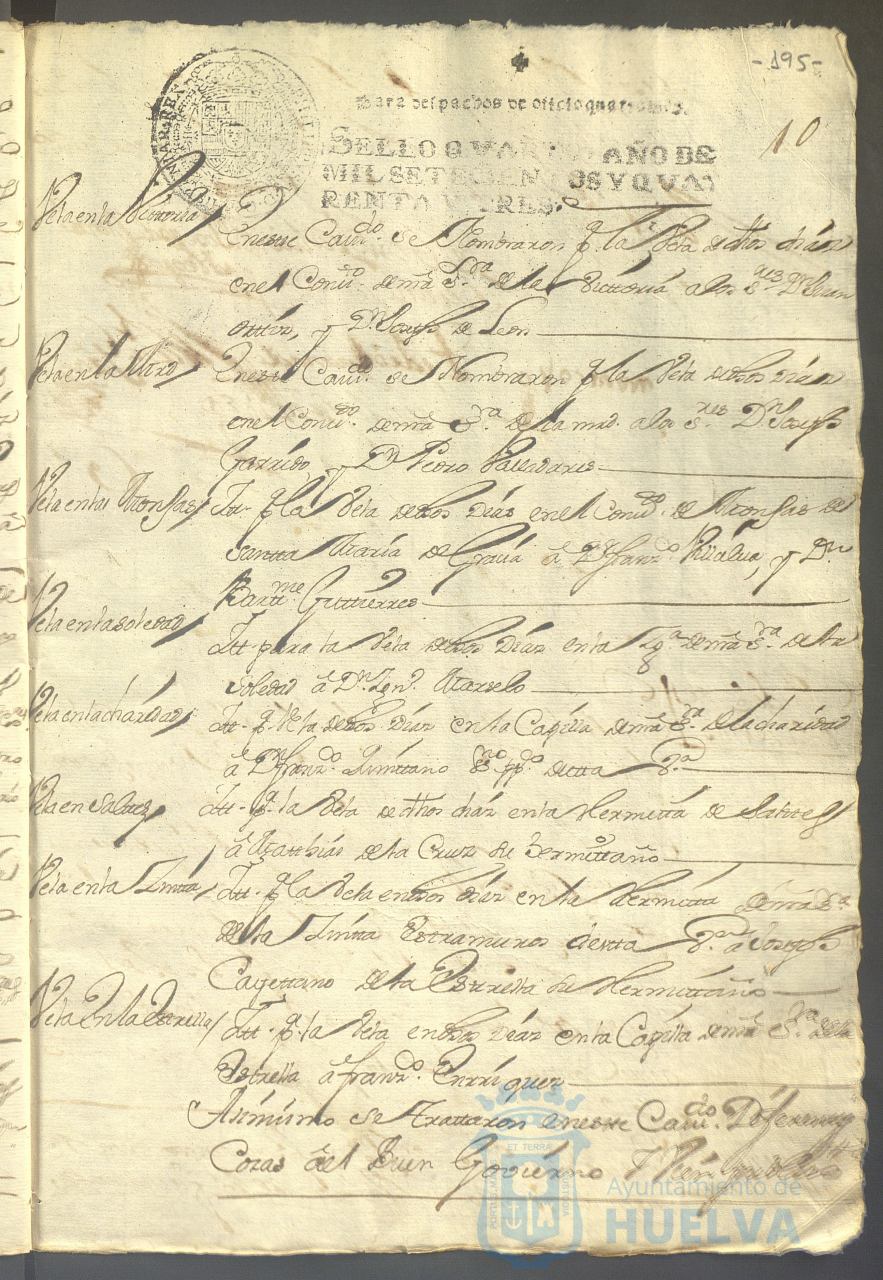 -195-
10
Para despachos de oficio quatro mrs.
SELLO QVARTO AÑO DE
MIL SETECIEN OS Y QVA
RENTA Y TRES.
Vela en la Victoria
En este Caudo. se Nombraron pa. la Vela de dhos dias
en el Convto. de nra Sra. de la Victoria a los Sres Dn Juan
Ortiz, y Dn Joseph de Leon
Vela en la Mrd
En este Caudo. se Nombraron pa. la Vela de dhos Dias
en el Convto. de nra Sra. de la mrd. a los Sres Dn Joseph
Garrido, y Dn Pedro
Vela en las Monjas
Itt. pa. la Vela de dhos Dias en el Convto. de Monjas de
Santta Maria de Gracia â Dn Franzco. Villalva, y Dn
Bartme Guttierres
Vela en la Soledad
Itt. para la Vela de dhos Dias en la Yga. de nra Sra. de la
Soledad â Dn
Vela en la Charidad
Itt. pa. Vela de dhos Dias en la Capilla de nra Sra. de la charidad
â Dn Franzco. Quinttano
Vela en Saltes
Itt. pa. la Vela de dhos dias en la Hermitta de Saltes
â Matthias de la Cruz su Hermittaño
Vela en la Zintta
Itt. pa. la Vela en dhos Dias en la Hermitta de nra Sra.
de la Zintta Extramuros de esta Va. â Joseph
Cayettano de la Estrella su Hermittaño
Vela En la Estrella
Itt. pa. la Vela en dhos Dias en la Capilla de nra Sra. de la
Estrella â Franzco. Enrriquez
Asimismo se Trattaron en este Caudo. Diferentes
Cosas â el Buen Govierno y Vien publico
ET TERRA
Ayuntamiento de
HUELVA